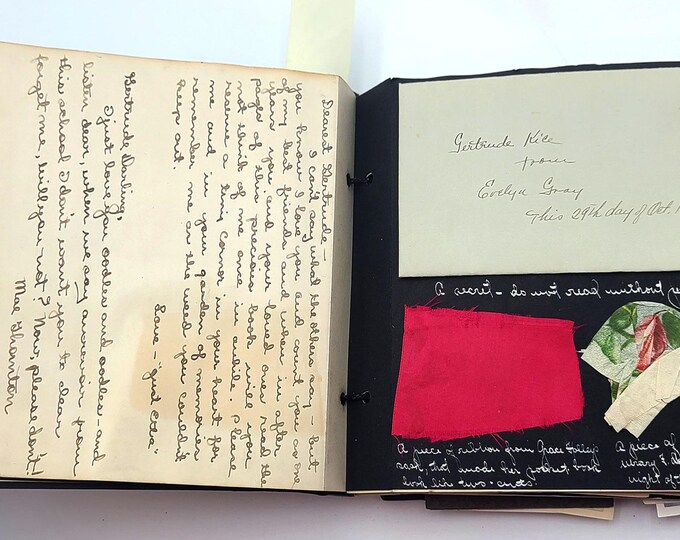 Dearest Gertrude —
I can't say what the others say – but
you know I love you and count you as one
of my best friends and when in after
years you and your loved ones read the
pages of this precious book will you
not think of me once in awhile. Please
reserve a tiny corner in your heart for
me and in your garden of memories
remember me as the weed you couldn't
keep out.
Love – "Just
Gertrude Darling,
I just love you oodles and oodles – and
listen, dear, when we say aurrevoir from
this school I don't want you to clear
forget me, will you not? Now, please don't!
Mae Thornton
Gertrude Rice
from
Evelyn Gray
This 29th day of Oct. 1
A secret – do not read without
A piece of ribbon from Grace
that made her pocket book
look like two-cents.
A piece of
night of